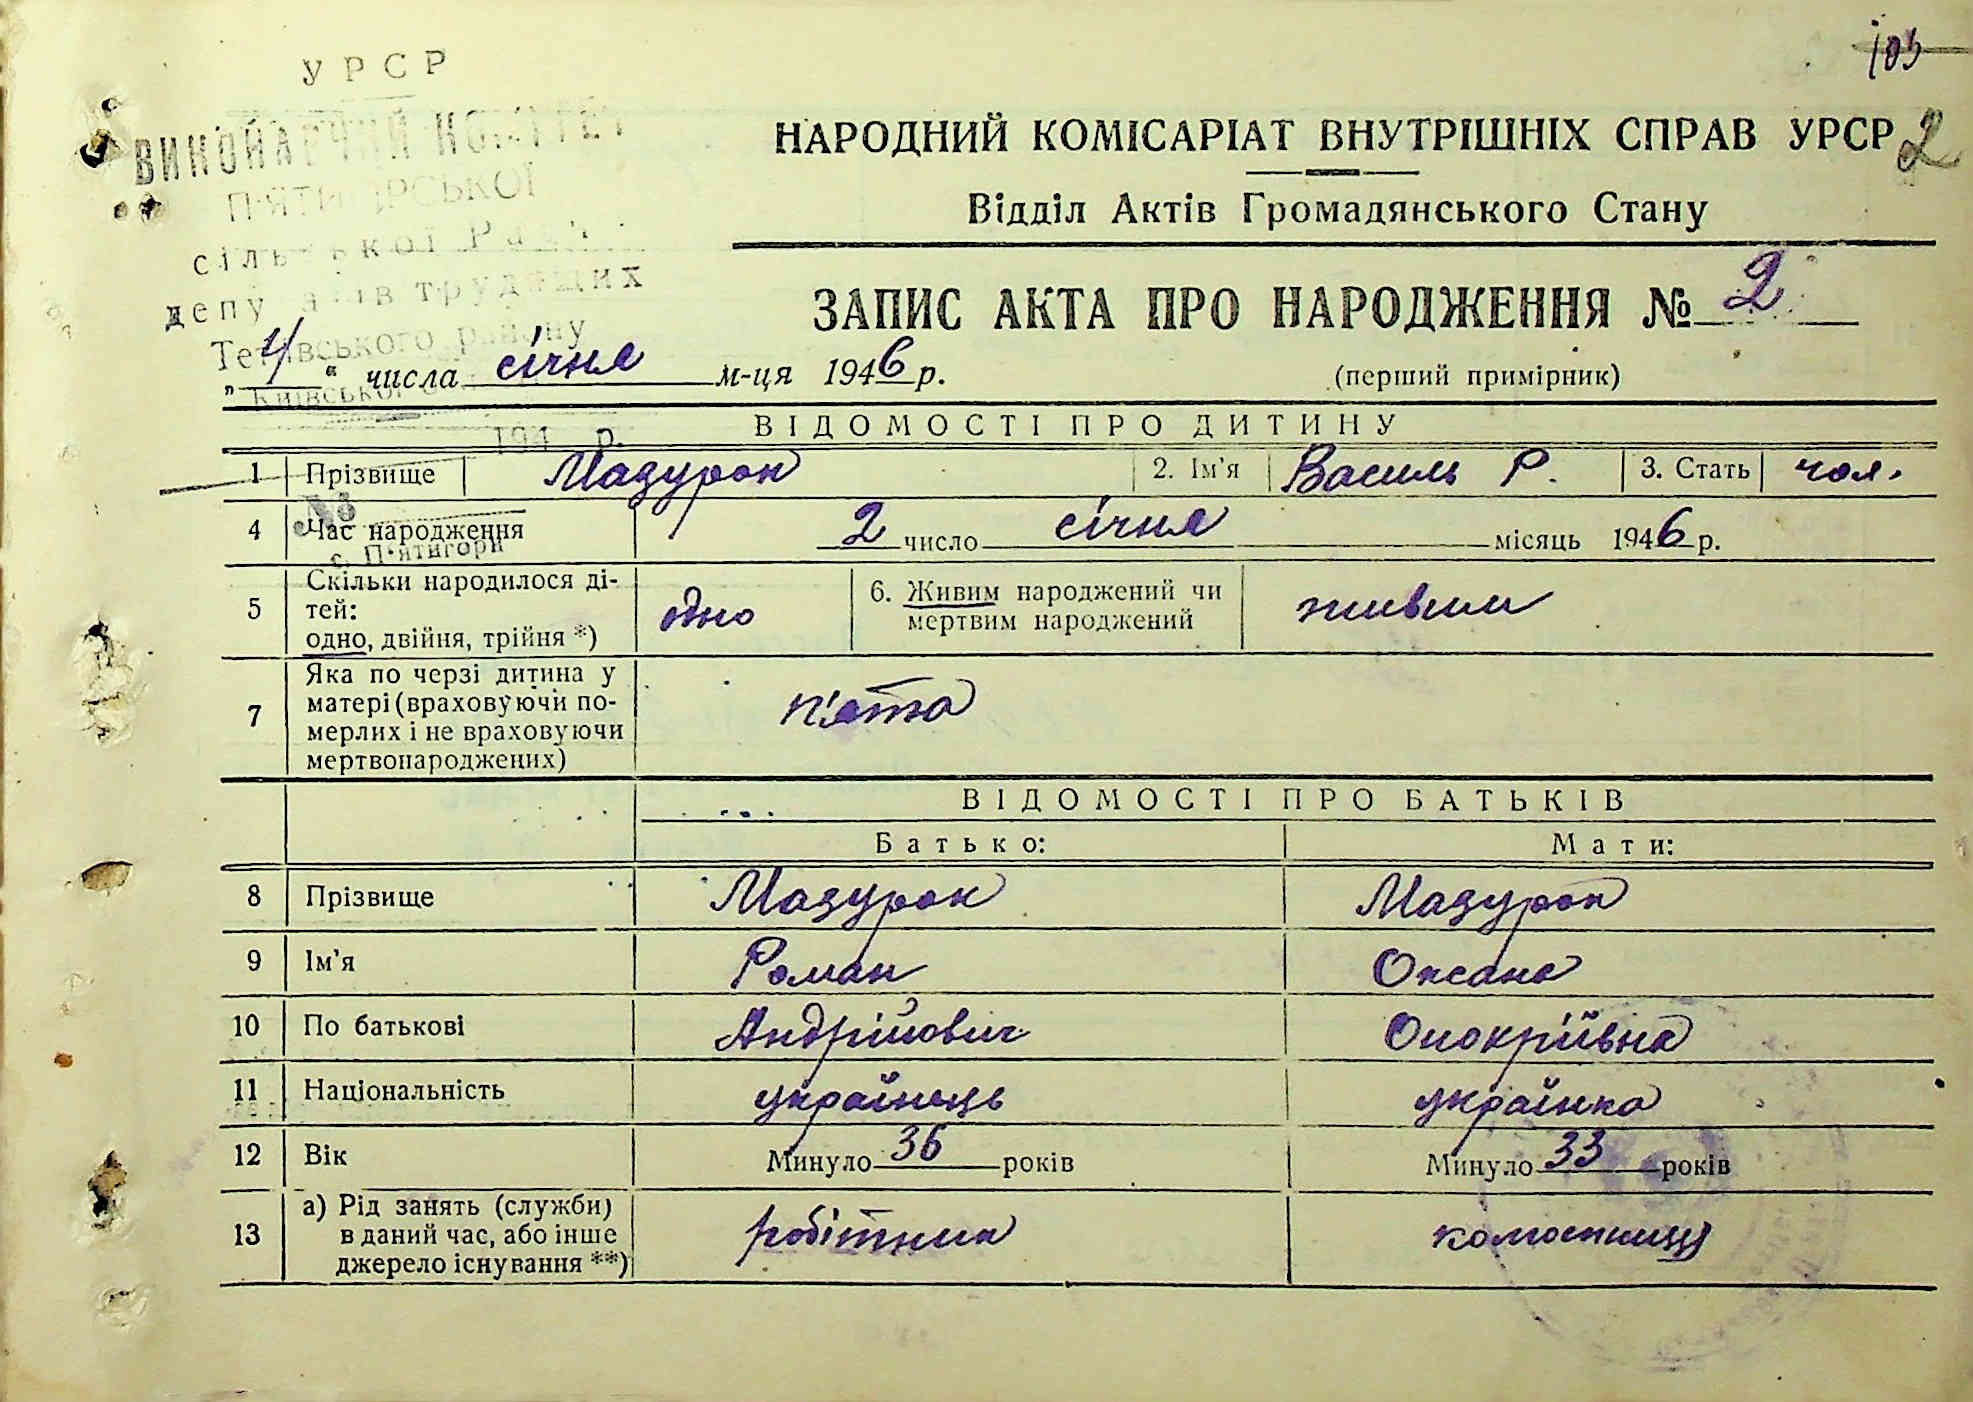 105
УРСР
ВИКОНАВЧИЙ КОМІТЕТ
П'ЯТИГІРСЬКОЇ
сільської Ради
депутатів трудящих
Тетіївського району
Київської
194 р.
№
с. П'ятигори
НАРОДНИЙ КОМІСАРІАТ ВНУТРІШНІХ СПРАВ УРСР 2
Відділ Актів Громадянського Стану
ЗАПИС АКТА ПРО НАРОДЖЕННЯ № 2
„ 4 “ числа січня м-ця 1946 р.
(перший примірник)
ВІДОМОСТІ ПРО ДИТИНУ
1 Прізвище Мазурок 2. Ім'я Василь Р. 3. Стать чол.
4 Час народження 2 число січня місяць 1946 р.
5 Скільки народилося ді-
тей:
одно, двійня, трійня *)
одно
6. Живим народжений чи
мертвим народжений
живим
7 Яка по черзі дитина у
матері (враховуючи по-
мерлих і не враховуючи
мертвонароджених)
п'ята
ВІДОМОСТІ ПРО БАТЬКІВ
Батько: Мати:
8 Прізвище Мазурок Мазурок
9 Ім'я Роман Оксана
10 По батькові Андрійович
11 Національність українець українка
12 Вік Минуло 36 років Минуло 33 років
13 а) Рід занять (служби)
в даний час, або інше
джерело існування **)
робітник